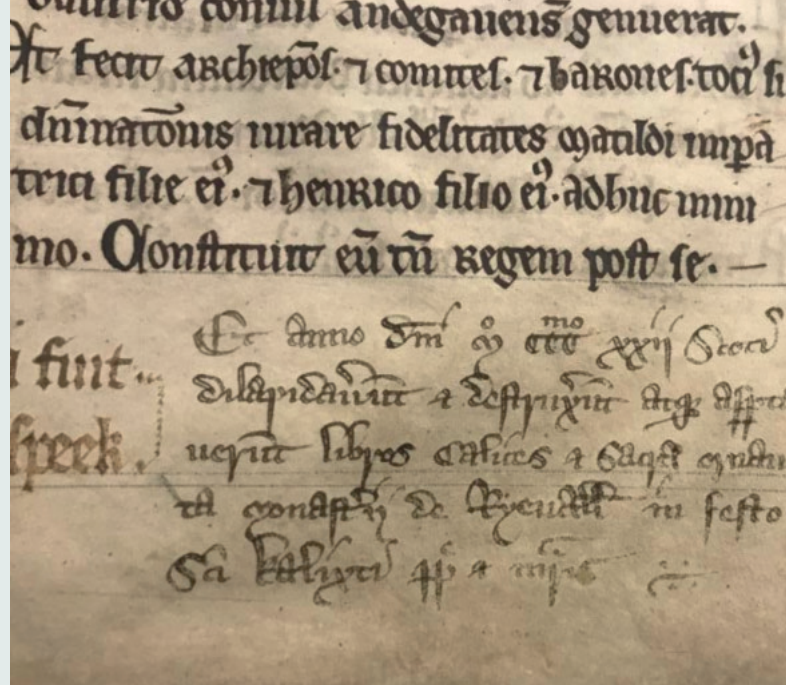 comiti andegauens̄ genuerat.
fecit archiep̄os. ⁊ comites. ⁊ barones. tocꝰ si
dn̄inatōnis iurare fidelitates matildi imꝑa
trici filie eiꝰ. ⁊ henrico filio eiꝰ. adhuc mini
mo. Constituit eū tn̄ regem post se. —
i fuit
speek.
Et anno dn̄i mͦ cccᵐᵒ xxij Scoti
dilapidauerūt ⁊ destruxerūt atqꝫ asporta
uerūt libros calices ⁊ sacra orna
ta monasterij de Ryeuall in festo
Sc̄i kalixti pp̄ ⁊ mr̄is